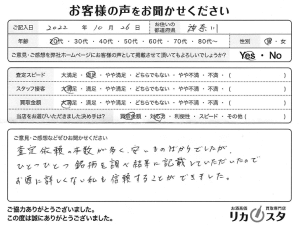 お客様の声をお聞かせください
ご記入日 2022年10月26日 お住いの都道府県 神奈川
年齢 20代・30代・40代・50代・60代・70代・80代～ 性別
ご意見・ご感想を弊社ホームページにお客様の声として掲載させて頂いてもよろしいでしょうか? Yes・No
査定スピード 大満足・満足・やや満足・どちらでもない・やや不満・不満・( )
スタッフ接客 大満足・満足・やや満足・どちらでもない・やや不満・不満・( )
買取金額 大満足・満足・やや満足・どちらでもない・やや不満・不満・( )
当店をお選びいただきました決め手は? 買取金額・対応・利便性・スピード・その他( )
ご意見・ご感想などぜひお聞かせください
査定依頼の本数が多く、安いものばかりでしたが、
ひとつひとつ銘柄を調べ結果に記載していただいたので
お酒に詳しくない私も信頼することができました。
ご協力ありがとうございました。
この度は誠にありがとうございました。
お酒高価買取専門店
リカスタ